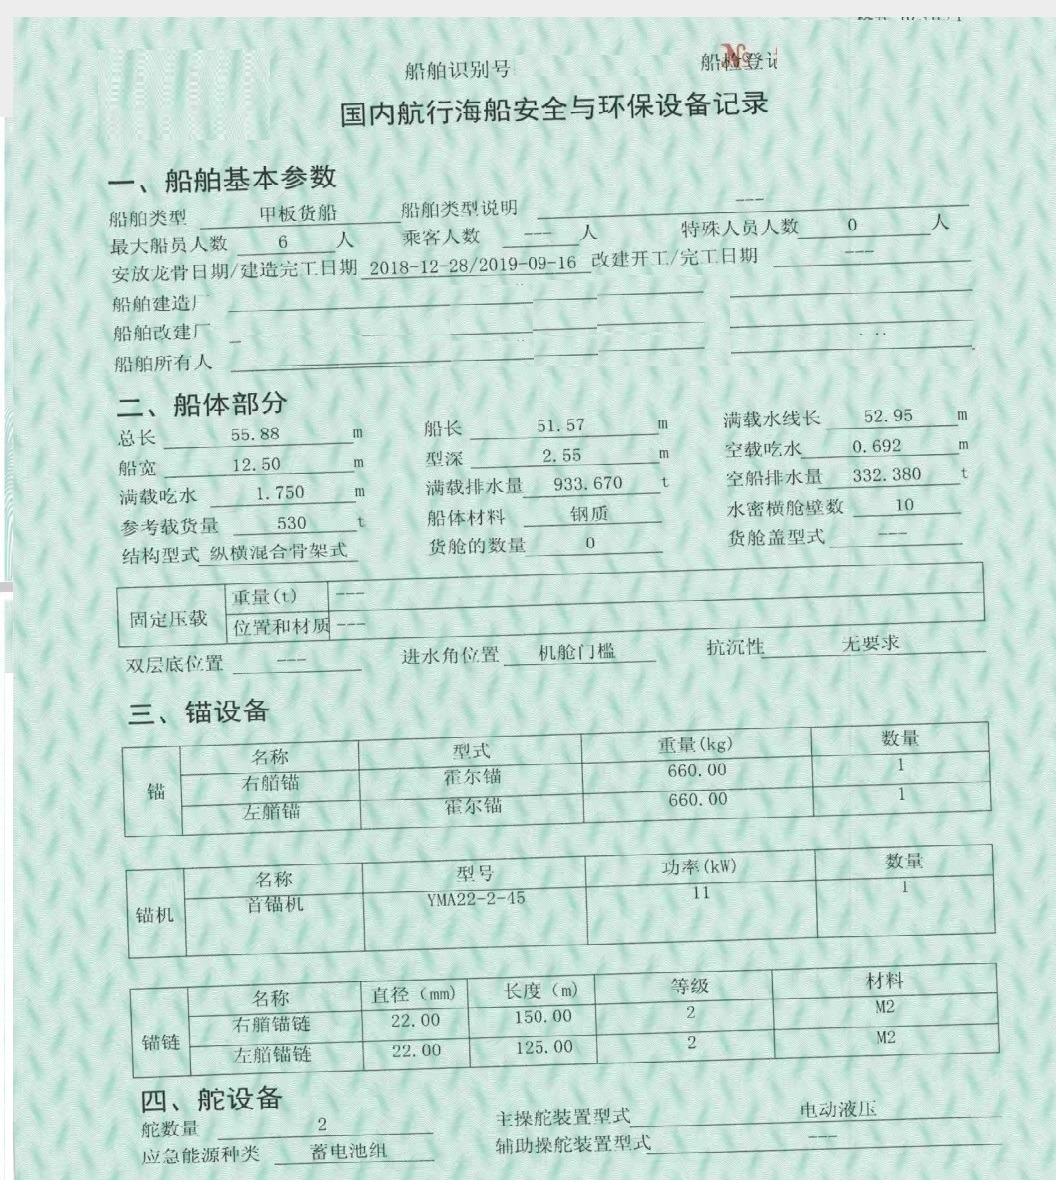 船舶识别号 船检登记
№
国内航行海船安全与环保设备记录
一、船舶基本参数
船舶类型 甲板货船 船舶类型说明 ---
最大船员人数 6 人 乘客人数 --- 人 特殊人员人数 0 人
安放龙骨日期/建造完工日期 2018-12-28/2019-09-16 改建开工/完工日期 ---
船舶建造厂
船舶改建厂
船舶所有人
二、船体部分
总长 55.88 m 船长 51.57 m 满载水线长 52.95 m
船宽 12.50 m 型深 2.55 m 空载吃水 0.692 m
满载吃水 1.750 m 满载排水量 933.670 t 空船排水量 332.380 t
参考载货量 530 t 船体材料 钢质 水密横舱壁数 10
结构型式 纵横混合骨架式 货舱的数量 0 货舱盖型式 ---
固定压载 重量(t) ---
位置和材质 ---
双层底位置 --- 进水角位置 机舱门槛 抗沉性 无要求
三、锚设备
锚 名称 型式 重量(kg) 数量
右艏锚 霍尔锚 660.00 1
左艏锚 霍尔锚 660.00 1
锚机 名称 型号 功率(kW) 数量
首锚机 YMA22-2-45 11 1
锚链 名称 直径（mm） 长度（m） 等级 材料
右艏锚链 22.00 150.00 2 M2
左艏锚链 22.00 125.00 2 M2
四、舵设备
舵数量 2 主操舵装置型式 电动液压
应急能源种类 蓄电池组 辅助操舵装置型式 ---